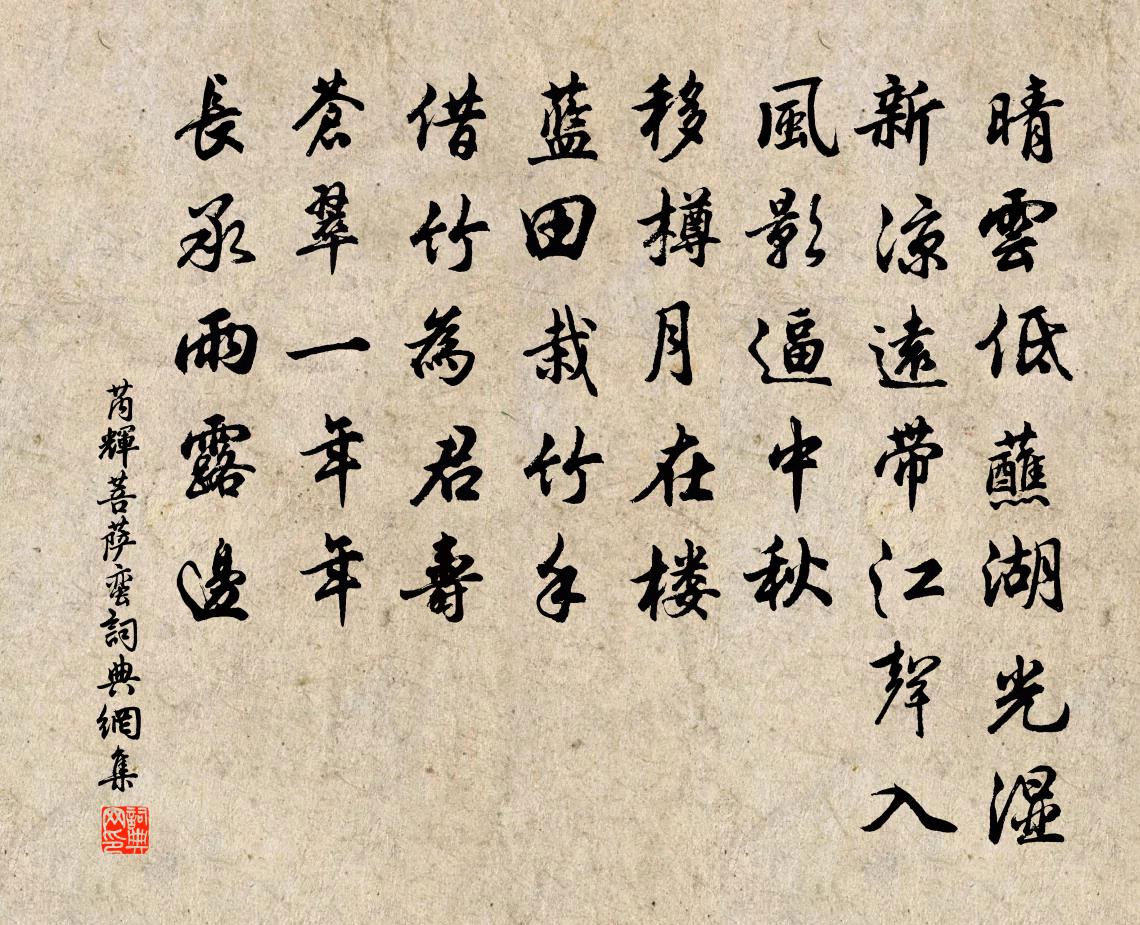 晴雲低蘸湖光湿
新涼遠帶江聲入
風影逼中秋
移樽月在楼
藍田栽竹手
借竹為君壽
蒼翠一年年
長承雨露邊
芮輝菩萨蛮詞典網集
詞典网印